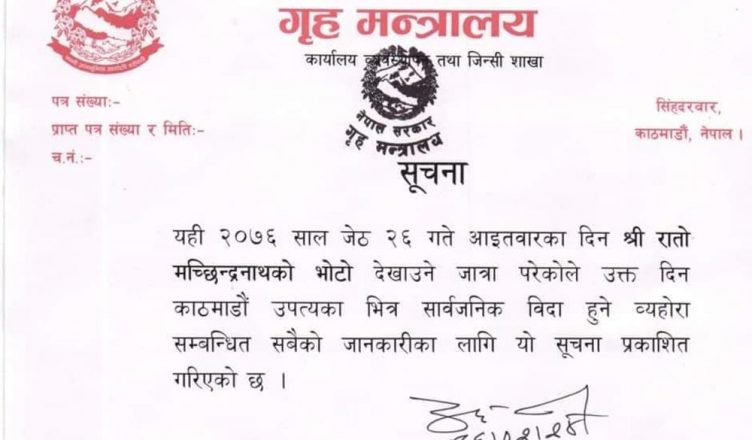 गृह मन्त्रालय
कार्यालय व्यवस्थापन तथा जिन्सी शाखा
नेपाल सरकार
गृह मन्त्रालय
पत्र संख्याः-
प्राप्त पत्र संख्या र मितिः-
च.नं.:-
सिंहदरवार,
काठमाडौं, नेपाल ।
सूचना
यही २०७६ साल जेठ २६ गते आइतवारका दिन श्री रातो
मच्छिन्द्रनाथको भोटो देखाउने जात्रा परेकोले उक्त दिन
काठमाडौं उपत्यका भित्र सार्वजनिक विदा हुने व्यहोरा
सम्बन्धित सबैको जानकारीका लागि यो सूचना प्रकाशित
गरिएको छ ।